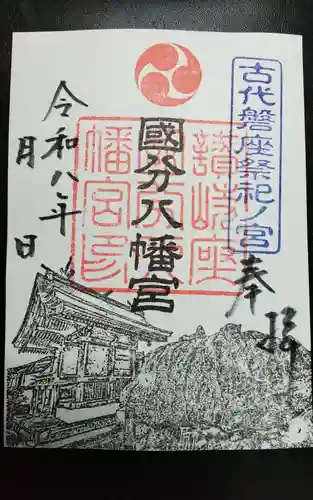 古代磐座祭祀ノ宮
奉拝
國分八幡宮
讃岐座
國分
八幡宮印
令和八年
月 日